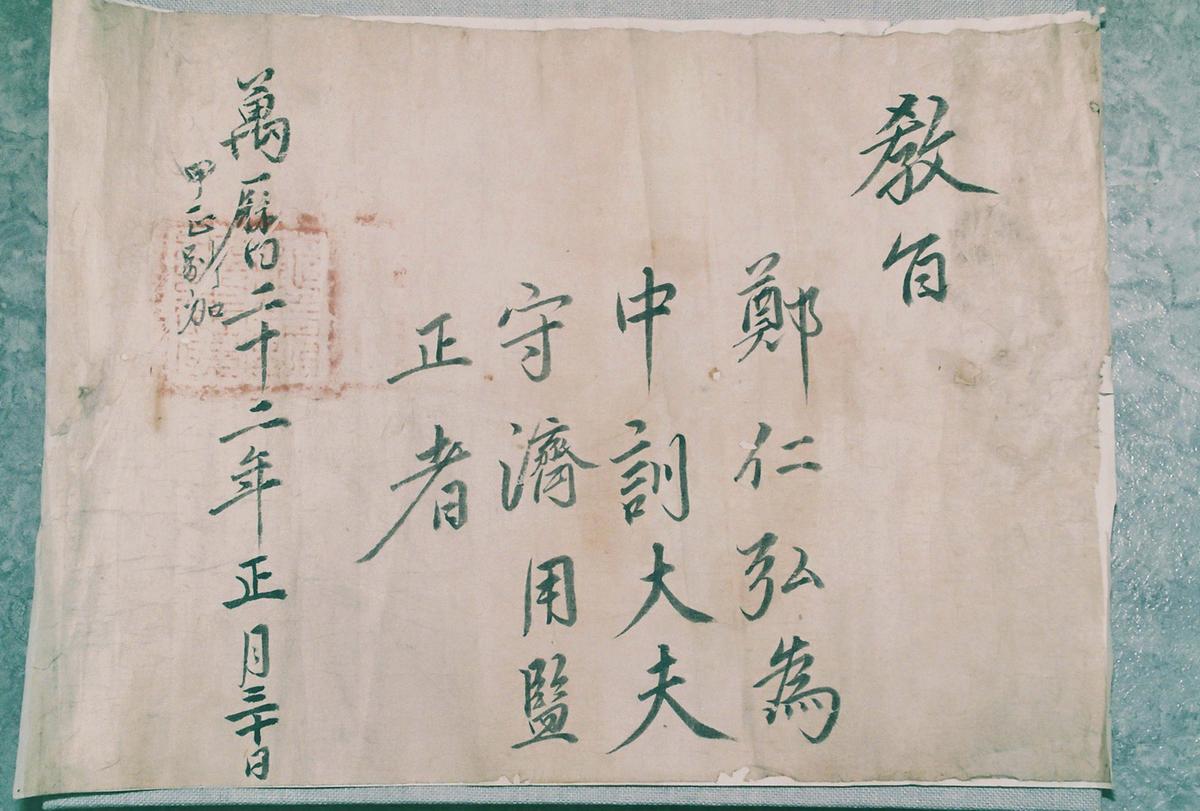 教旨
鄭仁弘為
中訓大夫
守濟用監
正者
萬曆二十二年正月三十日
甲正別加